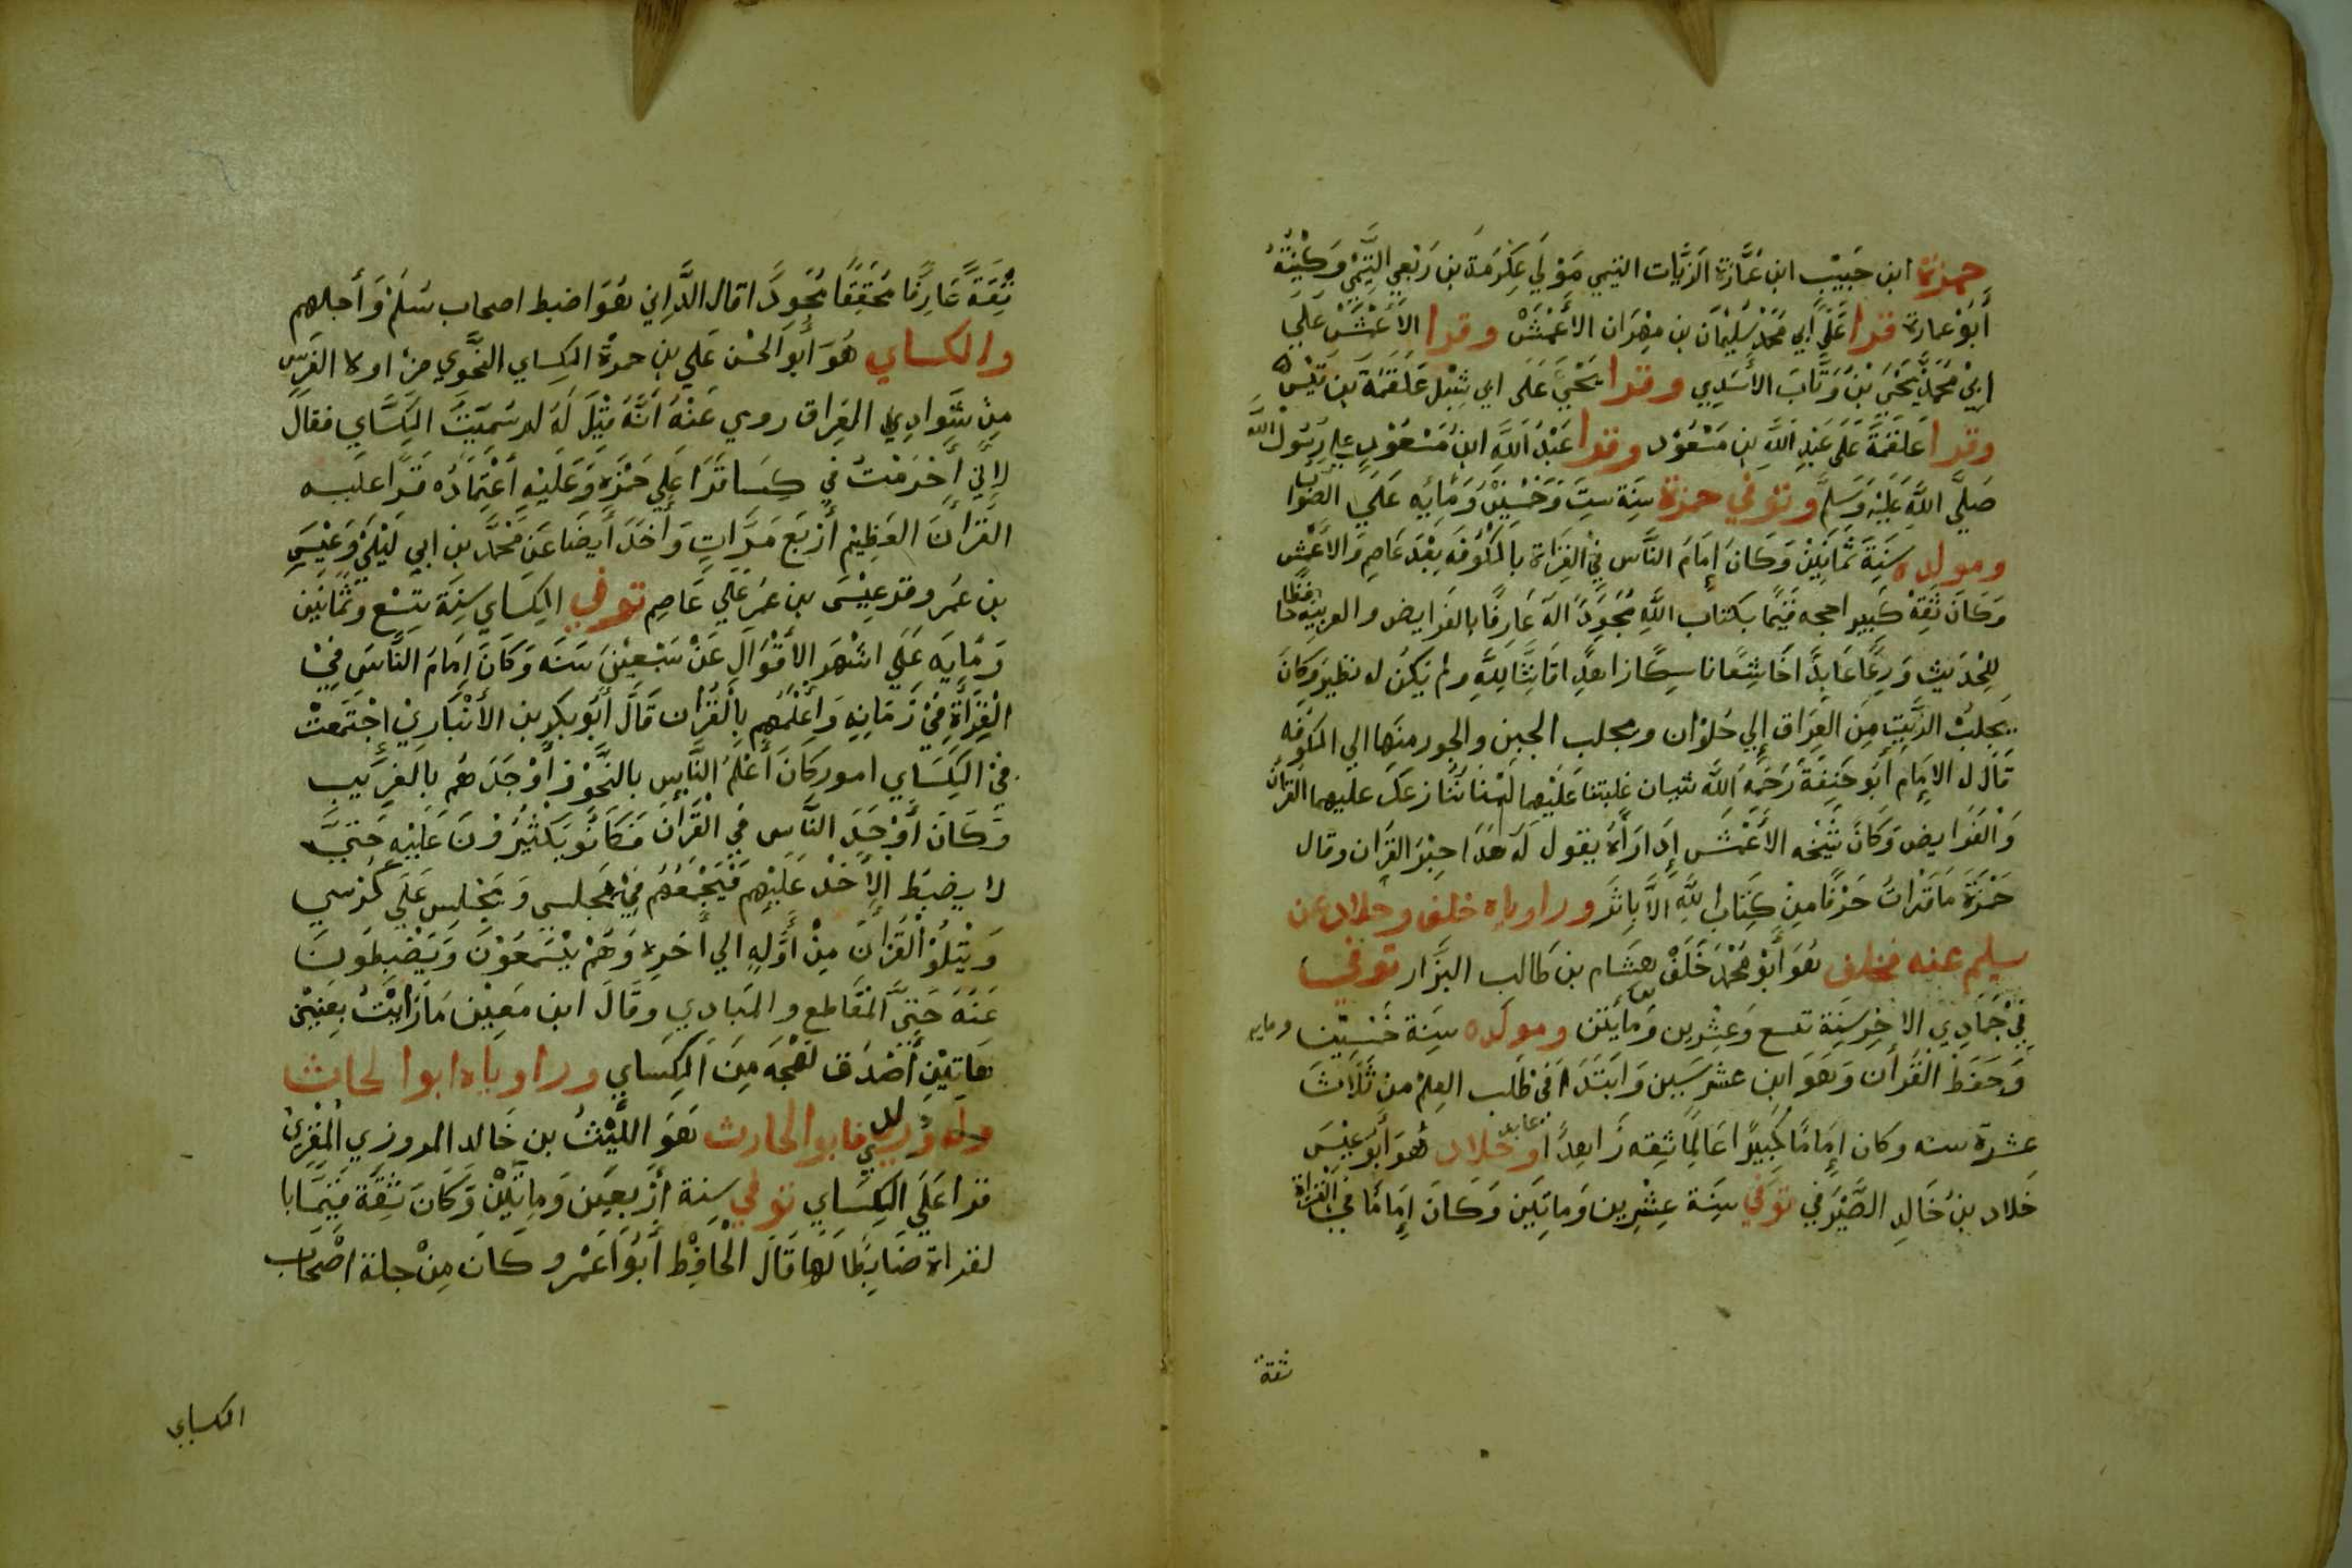 حمزة ابن حَبِيْب ابن عُمَّارَة الزَيَّات التيمي مَوْلَي عِكْرَمَة بن رَبْعِي التَّيمْي وَكُنْيَتُهُ
أَبُوْ عمارة قرا عَلَي أبي مُحَمَّد سُلَيْمَان بن مِهْرَان الأَعْمَشْ وقرا الأَعْمَشْ عَلَي
ابِيْ مُحَمَّد يَحْيَ بْنُ وَثَّابَ الأَسَدِي وقرا يَحْيَيَ عَلَى ابي شِبْل عَلْقَمَة بن قَيْس
وقرا عَلْقَمَةَ عَلَى عَبْدِ اللَّهِ بِن مَسْعُوْد وقرا عَبْدُ اللَّهِ ابنُ مَسْعُوْدٍ علي رَسُوْل اللَّه
صَلَّي اللَّهِ عَلَيْهْ وَسَلَّمْ وتوفي حمزة سَنَة سِتَ وَخَمْسِيْنْ وَمَايه عَلَيَ الصَوَاب
ومولده سَنَةَ ثَمَانِيْنْ وَكَانَ إِمَامَ النَّاس فِيْ القِرَاة بالكُوْفَه بَعْدَ عَاصِمِ وَالاَعْمش
وَكَانَ ثِقَة كَبِير احجه قَيِّمًا بكتاب اللَّهِ مُجَوِدًا لَهُ عَارِفًا بالفَرَايض والعربيه حافظا
لِلْحدَيْثِ وَرِعًا عَابِدًا خَاشِعًا ناسِكًا زاهدًا قَانِتًا لِلَّهِ ولم يَكنُ له نظير وَكَانَ
يَجْلِبُ الزَيتِ مِن العِرَاق إِلي حُلْوَان ويجلب الجبن والجوز مِنَها الي الكُوْفَه
قَال له الإِمَام أَبُو حَنِيْفَة رَحَمَهُ اللَّه شيان غلبتنا عَلَيْهِما لَسْنا نُنَازعك عليهما القران
وَالْفَرَايض وَكَانَ شَيْخه الأَعْمَشَ إِذَا رَأَهُ يقول لَهُ هَذَا حِبْرُ القِرَان وقال
حَمْزَة مَا قَرَاْتُ حَرْفًا مِنْ كِتَاب اللَّهِ الاَّ بِاثَرِ وراوياه خلف وخلاد عن
سليم عنه فخلف هُوَ أَبُوْ مُحَمْد خَلَفْ هِشَام بن طَالب البزَّار توفي
فِيْ جَمَادِي الاخِر سَنَة تسع وَعِشْرِين وَمَايَتَيْن ومولده سَنَة خَمْسِيْن ومايه
وَحَفِظَ الْقُرَان وَهَوَ ابن عشر سَبِين وَابْتَدَا فيْ طَلَب العِلْمْ من ثَلاَثَ
عشرة سنه وكان إِمَامًا كَبِيْرًا عَالِمًا ثِقه زَاهِدًا عابدا وخلاد هُوَ أَبُوْ عِيْسَي
خَلاد بنُ خَالِدِ الصَّيْرَفي تُوَفِّي سَنَة عِشْرِين وَمَاتَيْن وَكَانَ إِمَامًا فِي القْرَاة
ثقة
ثِقَةً عَارِفًا مُحَقِقًا مُجَوِدًا قال الدَّانِي هُوَ اضبط اصحاب سَلَمْ وَأجلهم
والكساي هُوَ أَبو الحْسَن عَلِي بن حمزة الكِساي النحْوَي مِنْ اولاد الفَرَس
مِنْ سَوادِي العِرَاق روي عَنْهُ أَنَّهُ قِيْلَ لَهُ لم سَمَيْتَ الكِسَاي فقال
لاِنِّي أَحْرَمْتُ فيِ كِسَا قَرَا عَلَي حَمْزَه وَعَلَيْهِ أعْتِمَادُه قَرَا عليه
القْرَأنَ العَظِيْم أَرْبَع مَرَّاتٍ وَأخَذَ أَيضَا عَن مُحْمَّد بن ابي لَيْلَيَ وَعِيْسَي
بن عُمَر وقرعِيْسَى بن عُمَر عَلَي عَاصِم توفي الكِساي سَنَة تِسْع وَثَمَانِيْن
وَمَايَه عَلَي اشْهَر الأَقْوَالِ عَنْ سَبْعِيْنَ سَنَه وَكَانَ إِمَامَ النَّاسَ فِيْ
الْقِرَأةِ فِيْ زَمَانِهِ وَأَعْلَمُهُمِ بِالْقُرَان قَالَ أَبُو بكر بن الأَنْبَارِيْ اجْتَمَعَتْ
فيْ الكِسَاي امور كَانَ أَعْلَمُ النَّاسِ بالنَّحْوْ وَأوْحَدَ هُم بالغَرِيب
وَكَانَ أَوْحَدَ النَّاسِ فيِ القْرَانَ فَكَانُوْ يَكْثُرُوْنَ عَلَيْهِ حَتيَّ
لا يضبَط الأَخْذ عَلَيْهِم فَيَجْمَعُهُم فِيْ مَجلسِ وَيَجْلِس عَلَي كُرْسي
وَيَتْلُوْ القُرَانَ مِنْ أَوَّلِهِ الي أخَرِه وَهُمْ يَسْمَعُوْنَ وَيَضْبِطُونَ
عَنَهَ حَتيَّ المقَاطِع والمبَادِي وقَالَ ابن مَعِيْن مَا رَايْتُ بِعَيْنيّ
هَاتَيْنِ أَصْدَق لَهْجَه مِنَ الكِسَاي وراوياه ابوالحاث
والدوري فابوالحارث هَوَ اللَّيْثُ بن خَالد المروزي المْقْرِئُ
قرا عَلَي الكِسَاي توفي سنة أَرْبَعِين وَمِاتَيْن وَكَانَ ثِقَة قَيِّمَا با
لقراة ضَابِطًا لَهَا قَالَ الْحَافِظ أَبُوْ عَمْر و كَانَ مِنْ جلة اصْحَاب
الكساي